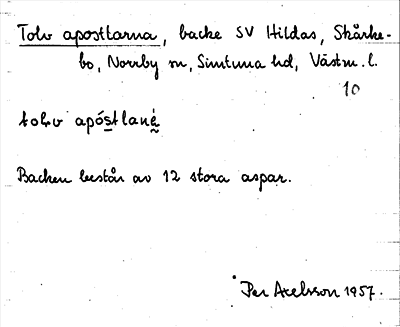 Tolv apostlarna, backe SV Hildas, Skårke-
bo, Norrby sn, Simtuna hd, Västm. l.
10
tolv apóstlanè
Backen består av 12 stora aspar.
Per Axelsson 1957.